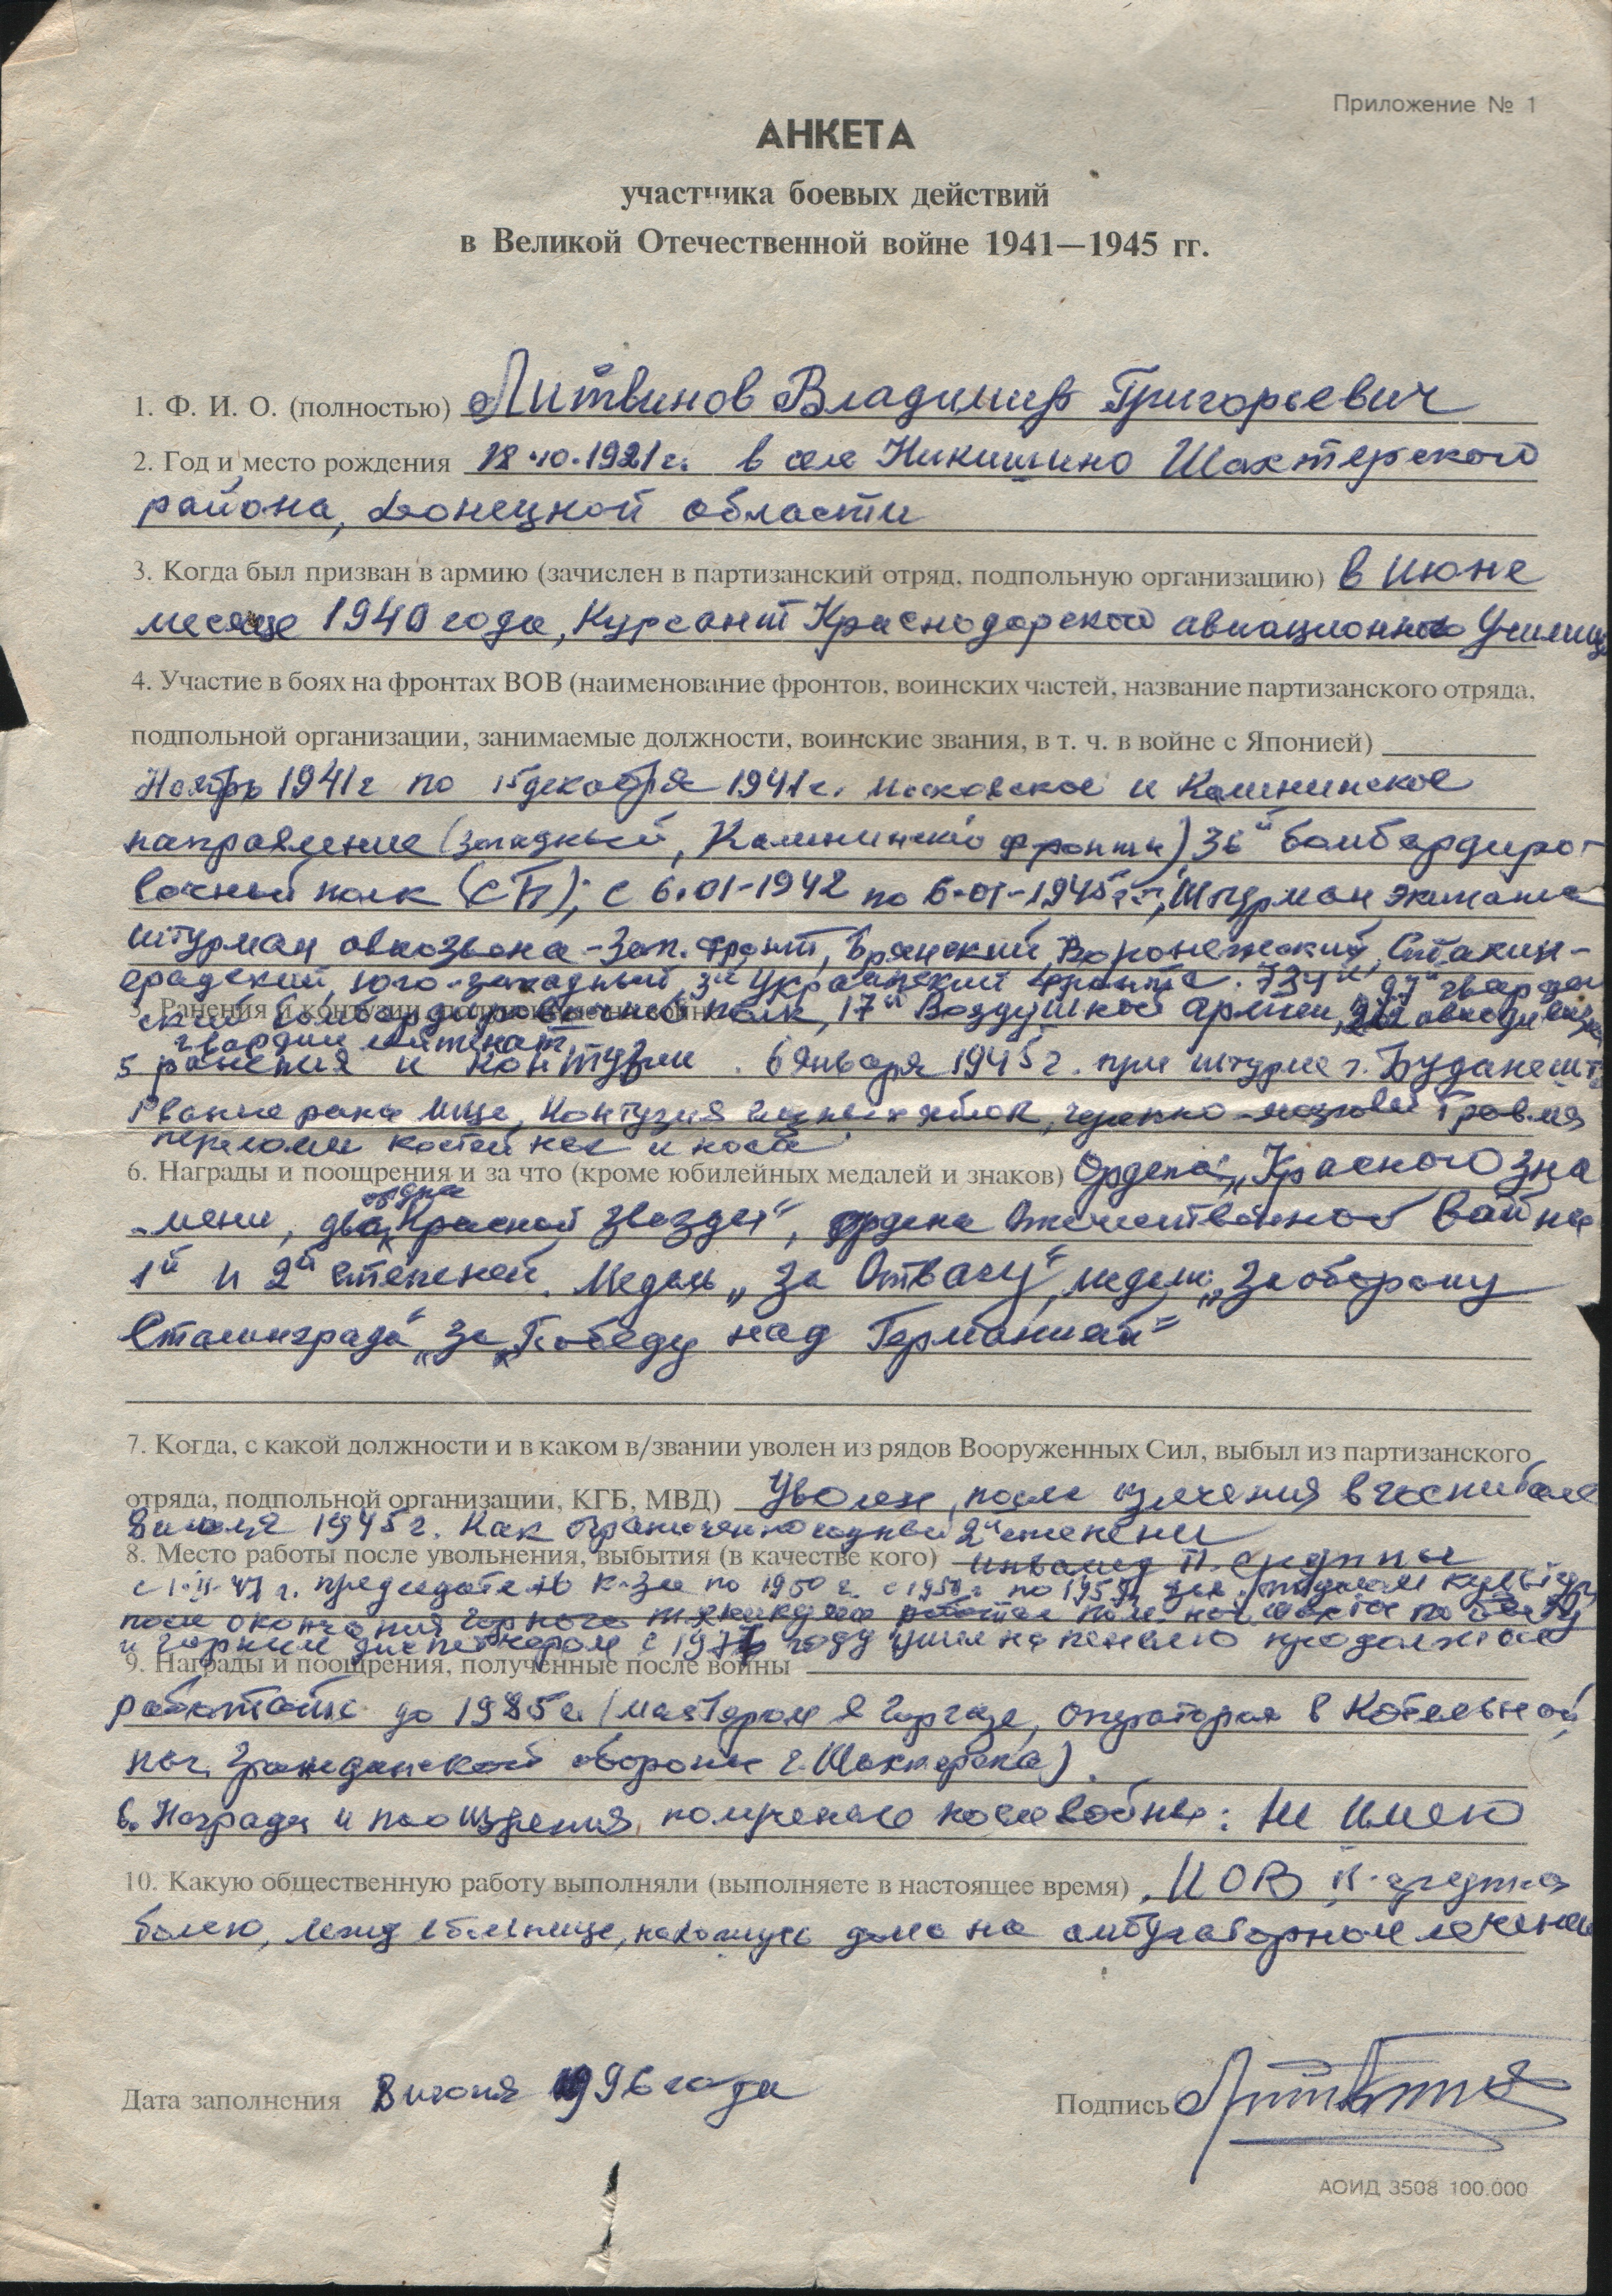 Приложение № 1
АНКЕТА
участника боевых действий
в Великой Отечественной войне 1941—1945 гг.
1. Ф. И. О. (полностью) Литвинов Владимир Григорьевич
2. Год и место рождения 18.10.1921 г. в селе Никишино Шахтерского
района, Донецкой области
3. Когда был призван в армию (зачислен в партизанский отряд, подпольную организацию) в июне
месяце 1940 года, Курсант Краснодарского авиационного Училища
4. Участие в боях на фронтах ВОВ (наименование фронтов, воинских частей, название партизанского отряда,
подпольной организации, занимаемые должности, воинские звания, в т. ч. в войне с Японией)
Ноябрь 1941 г по 15 декабря 1941 г. Московское и Калининское
направление (Западный, Калининский фронты) 36й бомбардиро-
вочный полк (СБ); с 6.01-1942 по 6-01-1945 г., Штурман экипажа
штурман авиазвена - Зап. фронт, Брянский, Воронежский, Сталин-
градский, юго-западный, 3й Украинский фронта. 734й 97й гвардей
ский бомбардировочный полк, 17й Воздушной армии,
5. Ранения и контузии
гвардии лейтенант
5 ранения и контузии. 6 января 1945 г. при штурме г. Будапешт
Рваные раны лица, Контузия глазных яблок, черепно-мозговая травма
переломы костей ног и носа
6. Награды и поощрения и за что (кроме юбилейных медалей и знаков) Ордена „Красного Зна
-мени, два ордена Красной звезды", ордена Отечественной Войны
1й и 2й степеней. Медаль „За Отвагу", медаль „За оборону
Сталинграда" „За Победу над Германией"
7. Когда, с какой должности и в каком в/звании уволен из рядов Вооруженных Сил, выбыл из партизанского
отряда, подпольной организации, КГБ, МВД) Уволен, после излечения в госпитале
8 июля 1945 г. Как ограниченно годный 2й степени
8. Место работы после увольнения, выбытия (в качестве кого) инвалид II. группы
г. председатель к-за по 1950 г. с по
после окончания горного техникума работал
и горным диспетчером с году ушел на пенсию продолжал
9. Награды и поощрения, полученные после войны
работать до 1985 г. (мастером в Горгазе, оператором в Котельной
нач. Гражданской обороны г. Шахтерска).
Награды и поощрения, полученные после войны: Не имею
10. Какую общественную работу выполняли (выполняете в настоящее время) ИОВ II-группа
болею, лежу в больнице, нахожусь дома на амбулаторном лечении
Дата заполнения 8 июня 1996 года
Подпись
АОИД 3508 100.000